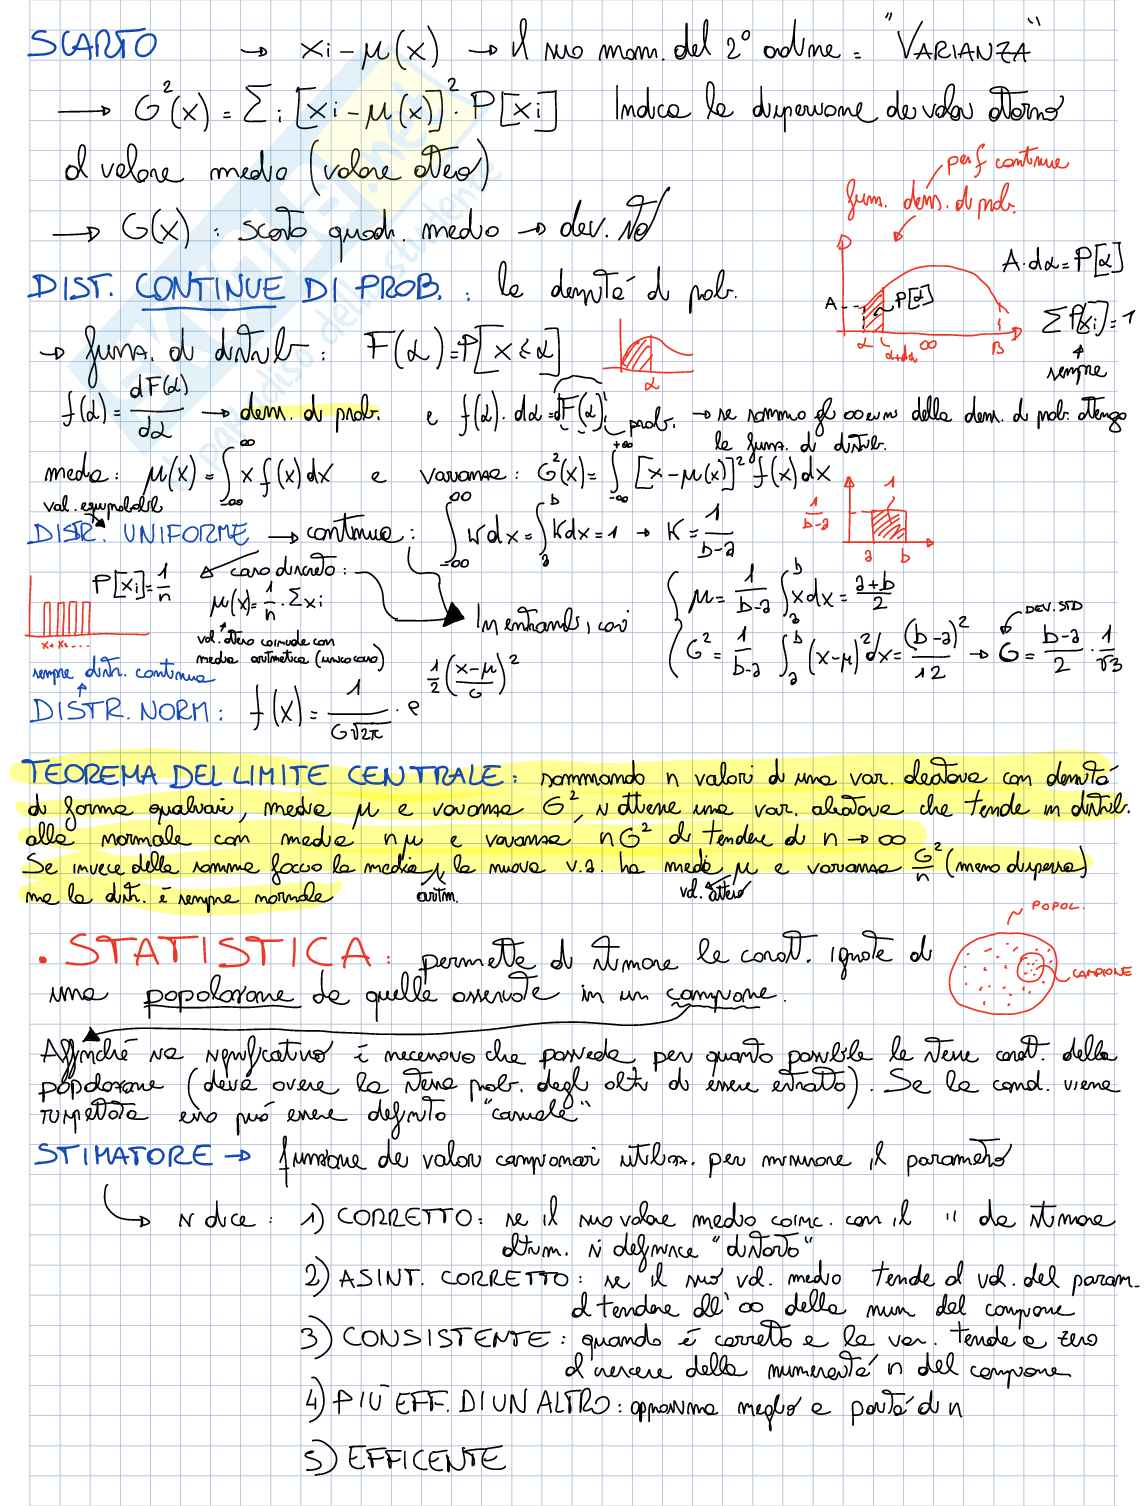 SCARTO → xi - μ(x) → il suo mom. del 2° ordine = "VARIANZA"
→ σ²(x) = Σi [xi - μ(x)]² · P[xi] Indica la dispersione dei valori attorno
al valore medio (valore atteso)
→ σ(x) : scarto quadr. medio → dev. std
per f continue
funz. dens. di prob.
A
P[α]
α
α+dα
∞
B
A·dα = P[α]
ΣP[xi] = 1
sempre
DIST. CONTINUE DI PROB. : la densità di prob.
→ funz. di distrib : F(α) = P[x ≤ α]
α
f(α) = dF(α)/dα → dens. di prob. e f(α)·dα = dF(α) prob. → se sommo gli ∞ della dens. di prob. ottengo
la funz. di distrib.
media : μ(x) = ∫-∞^∞ x f(x) dx e varianza : σ²(x) = ∫-∞^+∞ [x - μ(x)]² f(x) dx
val. equiprobabili
DISTR. UNIFORME → continua : ∫-∞^∞ K dx = ∫a^b K dx = 1 → K = 1/(b-a)
1/(b-a)
1
a b
P[xi] = 1/n
caso discreto :
μ(x) = 1/n · Σxi
val. atteso coincide con
media aritmetica (unico caso)
x1 x2 ....
In entrambi i casi
{ μ = 1/(b-a) ∫a^b x dx = (a+b)/2
σ² = 1/(b-a) ∫a^b (x-μ)² dx = (b-a)²/12 → σ = (b-a)/2 · 1/√3
DEV. STD
sempre distr. continua
DISTR. NORM : f(x) = 1/(σ√2π) · e^ 1/2 ((x-μ)/σ)²
TEOREMA DEL LIMITE CENTRALE : sommando n valori di una var. aleatoria con densità
di forma qualsiasi, media μ e varianza σ², si ottiene una var. aleatoria che tende in distrib.
alla normale con media nμ e varianza nσ² al tendere di n → ∞
Se invece della somma faccio la media, la nuova v.a. ha media μ e varianza σ²/n (meno dispersa)
ma la distr. è sempre normale
aritm.
val. atteso
• STATISTICA : permette di stimare le caratt. ignote di
una popolazione da quelle osservate in un campione.
POPOL.
CAMPIONE
Affinché sia significativo è necessario che possieda, per quanto possibile le stesse caratt. della
popolazione (deve avere la stessa prob. degli altri di essere estratto). Se la cond. viene
rispettata esso può essere definito "casuale"
STIMATORE → funzione dei valori campionari utilizz. per misurare il parametro
→ si dice : 1) CORRETTO : se il suo valore medio coinc. con il " da stimare
altrim. si definisce "distorto"
2) ASINT. CORRETTO : se il suo val. medio tende al val. del param.
al tendere all'∞ della num del campione
3) CONSISTENTE : quando è corretto e la var. tende a zero
al crescere della numerosità n del campione
4) PIÙ EFF. DI UN ALTRO : approssima meglio a parità di n
5) EFFICENTE